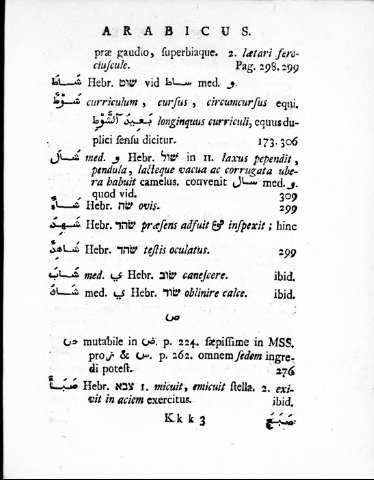 ARABICUS.
præ gaudio, superbiaque. 2. lætari fero-
ciuscule. Pag. 298.299
شَاطَ Hebr. שוט vid ساط med. و
شَوْطٌ curriculum, cursus, circumcursus equi.
بَعِيدُ آلشَّوْطِ longinquus curriculi, equus du-
plici sensu dicitur. 173.306
شَالَ med. و Hebr. שול in II. laxus pependit,
pendula, lacteque vacua ac corrugata ube-
ra habuit camelus. convenit سال med. و.
quod vid. 309
شَاةٌ Hebr. שה ovis. 299
شَهِدَ Hebr. שהד præsens adfuit & inspexit; hinc
شَاهِدٌ Hebr. שהד testis oculatus. 299
شَابَ med. ي Hebr. שוב canescere. ibid.
شَادَ med. ي Hebr. שוד oblinire calce. ibid.
ص
ص mutabile in ض. p. 224. sæpissime in MSS.
pro ز & س. p. 262. omnem sedem ingre-
di potest. 276
صَبَأَ Hebr. צבא 1. micuit, emicuit stella. 2. exi-
vit in aciem exercitus. ibid.
Kkk 3